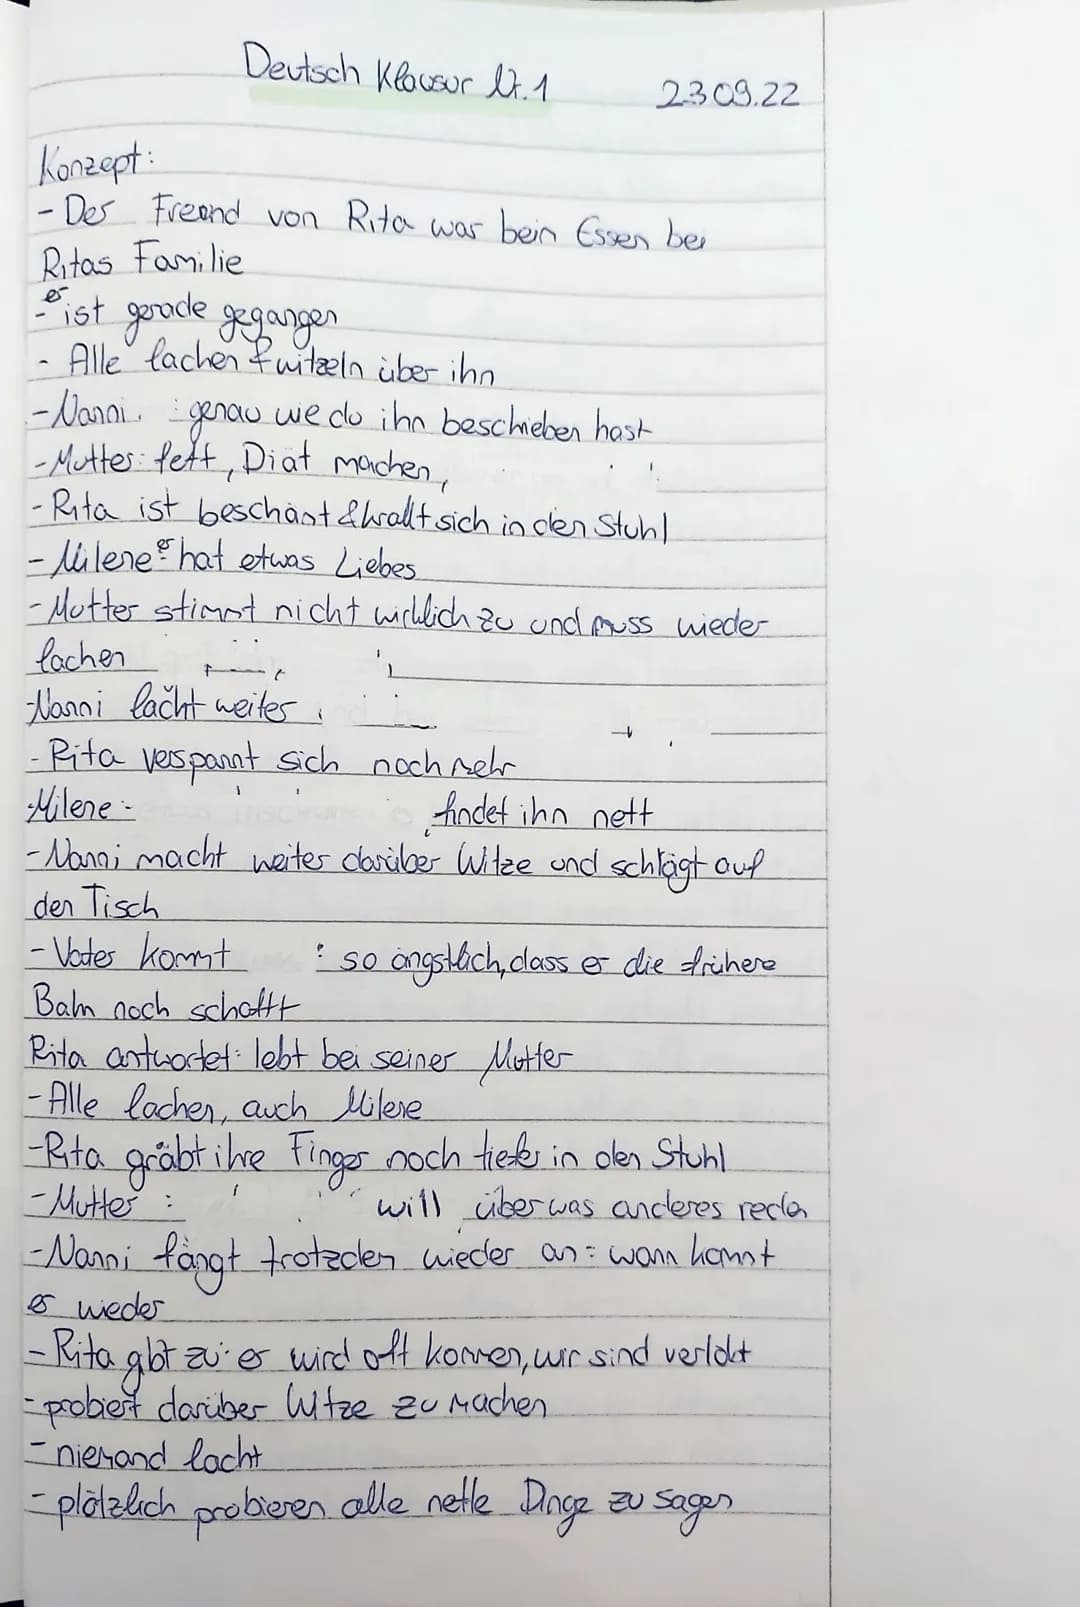 Deutsch Klausur Nr. 1 23.09.22
Konzept:
- Der Freund von Rita war bein Essen bei
Ritas Familie
- er ist gerade gegangen
- Alle lachen & witzeln über ihn
- Nanni : genau wie du ihn beschrieben hast
- Mutter: fett, Diät machen,
- Rita ist beschämt & krallt sich in den Stuhl
- Milene: er hat etwas Liebes
- Mutter stimmt nicht wirklich zu und muss wieder
lachen
- Nanni lacht weiter
- Rita verspannt sich noch mehr
- Milene - findet ihn nett
- Nanni macht weiter darüber Witze und schlägt auf
den Tisch
- Vater kommt : so ängstlich, dass er die frühere
Bahn noch schafft
Rita antwortet: lebt bei seiner Mutter
- Alle lachen, auch Milene
- Rita gräbt ihre Finger noch tiefer in den Stuhl
- Mutter : will über was anderes reden
- Nanni fängt trotzdem wieder an: wann kommt
er wieder
- Rita gibt zu: er wird oft kommen, wir sind verlobt
- probiert darüber Witze zu machen
- niemand lacht
- plötzlich probieren alle nette Dinge zu sagen